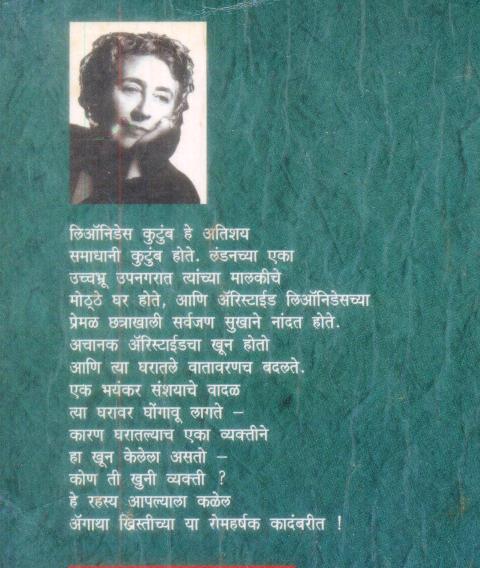 लिऑनिडेस कुटुंब हे अतिशय
समाधानी कुटुंब होते. लंडनच्या एका
उच्चभ्रू उपनगरात त्यांच्या मालकीचे
मोठ्ठे घर होते, आणि ॲरिस्टाईड लिऑनिडेसच्या
प्रेमळ छत्राखाली सर्वजण सुखाने नांदत होते.
अचानक ॲरिस्टाईडचा खून होतो
आणि त्या घरातले वातावरणच बदलते.
एक भयंकर संशयाचे वादळ
त्या घरावर घोंगावू लागते –
कारण घरातल्याच एका व्यक्तीने
हा खून केलेला असतो –
कोण ती खुनी व्यक्ती ?
हे रहस्य आपल्याला कळेल
ॲगाथा ख्रिस्तीच्या या रोमहर्षक कादंबरीत !